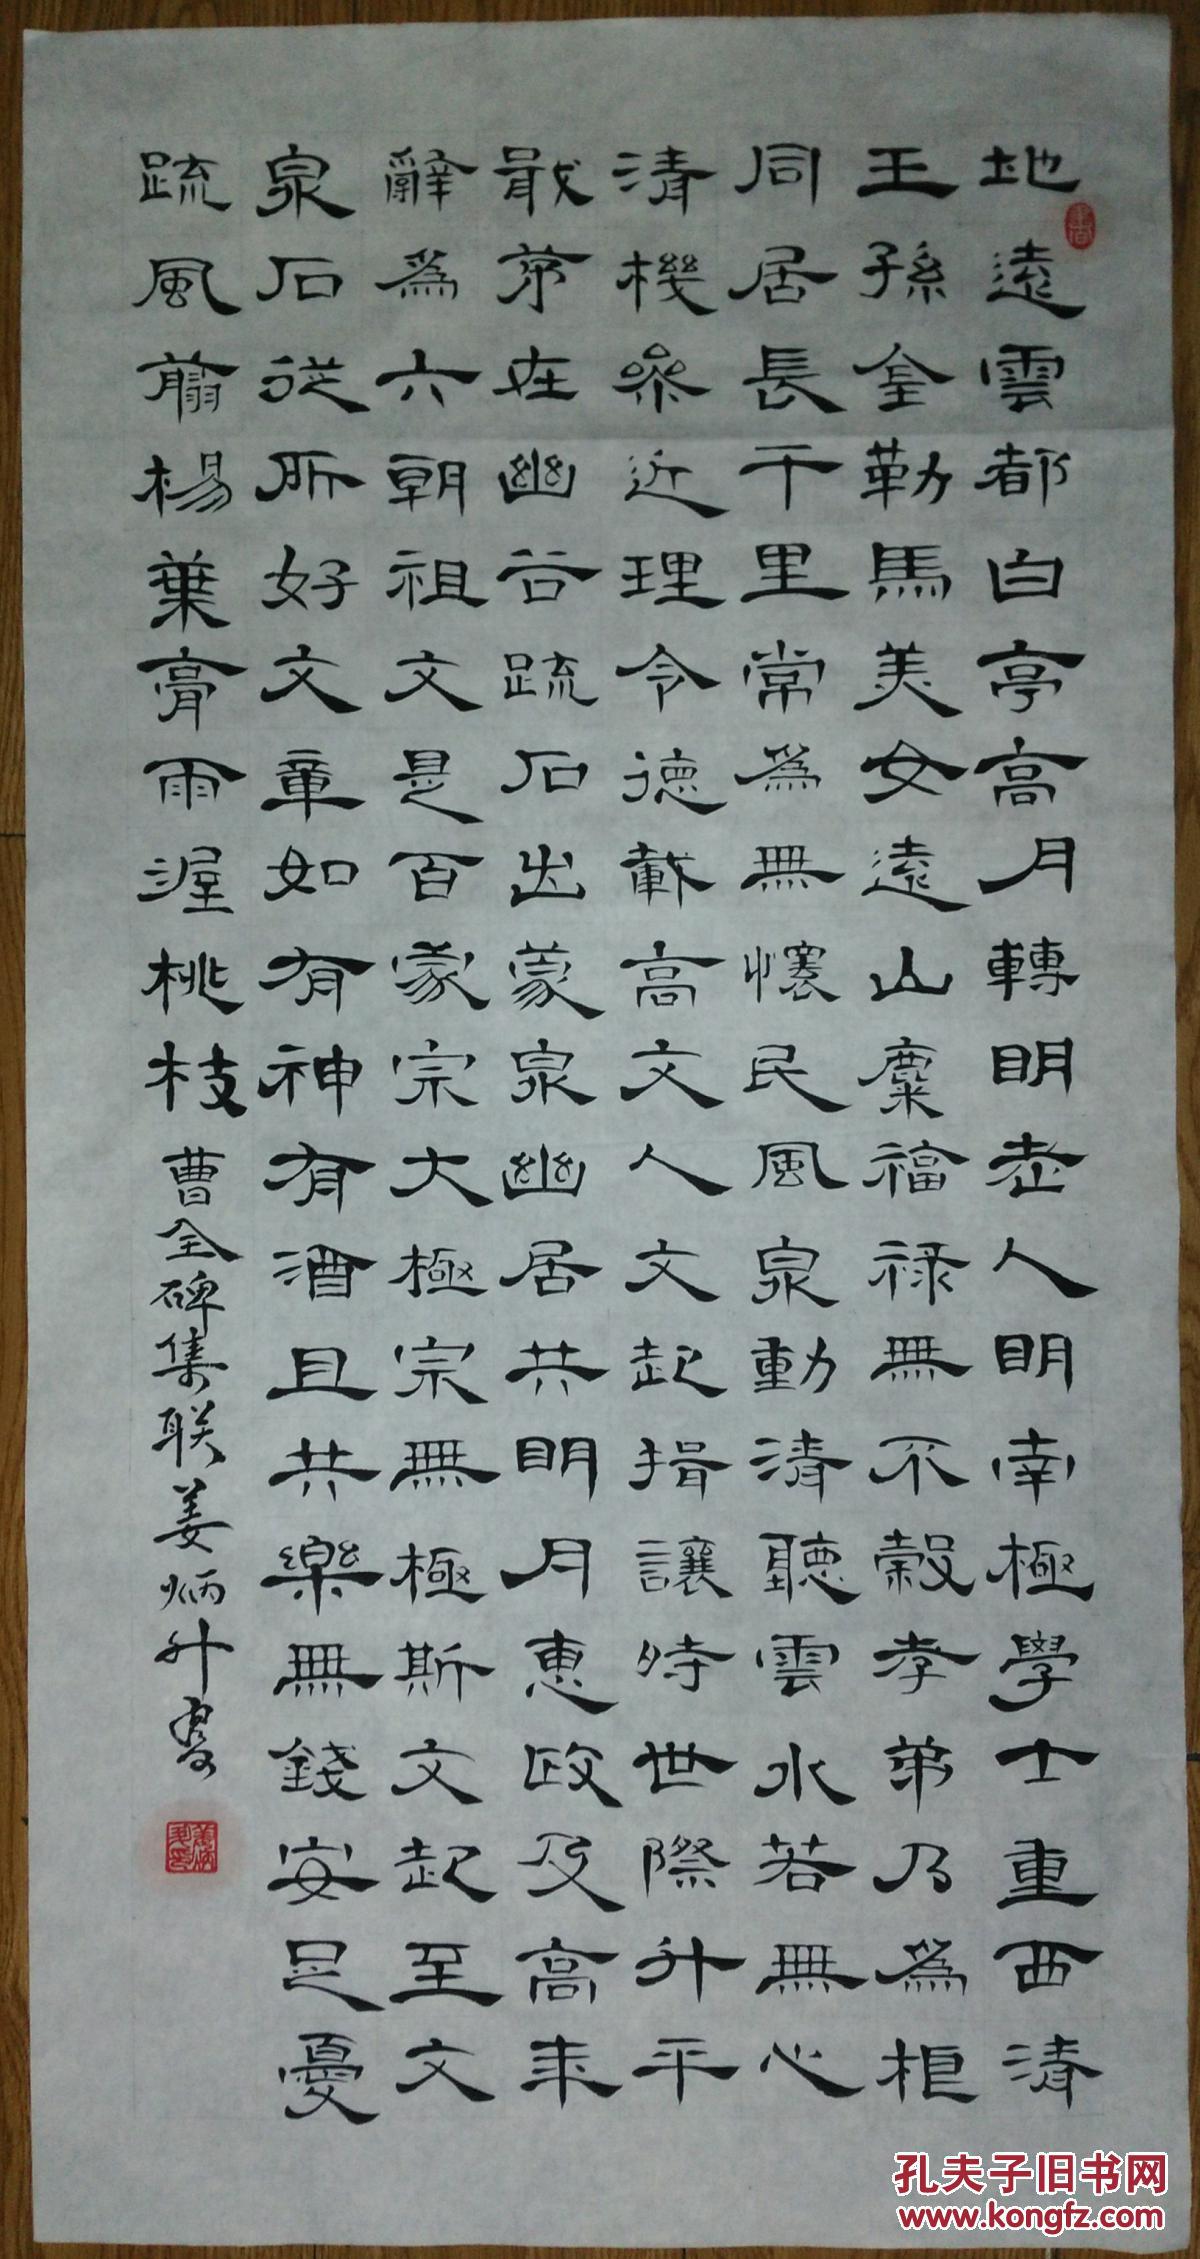 地遠雲都白亭高月轉明老人明南極學士重西清
王孫金勒馬美女遠山麋福祿無不穀孝弟乃為根
同居長干里常為無懷民風泉動清聽雲水若無心
清機參近理令德載高文人文起揖讓時世際升平
散茅在幽谷疏石出蒙泉幽居共明月惠政及高年
辭為六朝祖文是百家宗大極宗無極斯文起至文
泉石從所好文章如有神有酒且共樂無錢安足憂
疏風翦楊葉膏雨渥桃枝 曹全碑集联 姜炳升書
孔夫子旧书网
www.kongfz.com